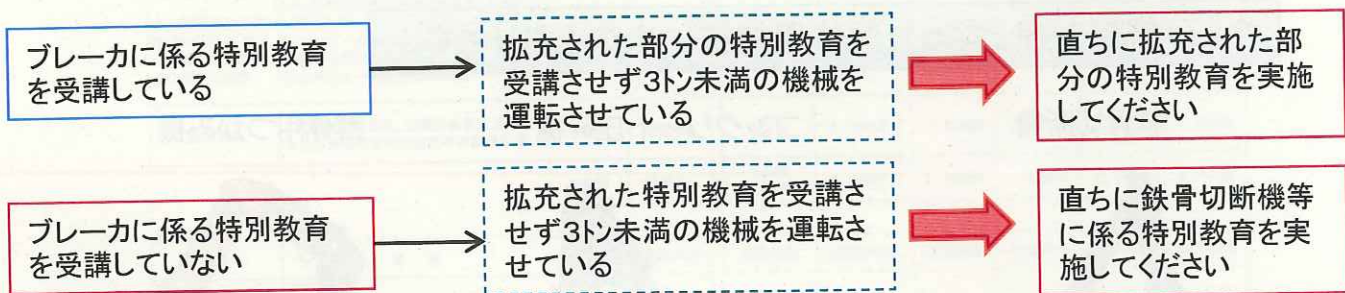 ブレーカに係る特別教育
を受講している
拡充された部分の特別教育を
受講させず3トン未満の機械を
運転させている
直ちに拡充された部
分の特別教育を実施
してください
ブレーカに係る特別教育
を受講していない
拡充された特別教育を受講さ
せず3トン未満の機械を運転さ
せている
直ちに鉄骨切断機等
に係る特別教育を実
施してください